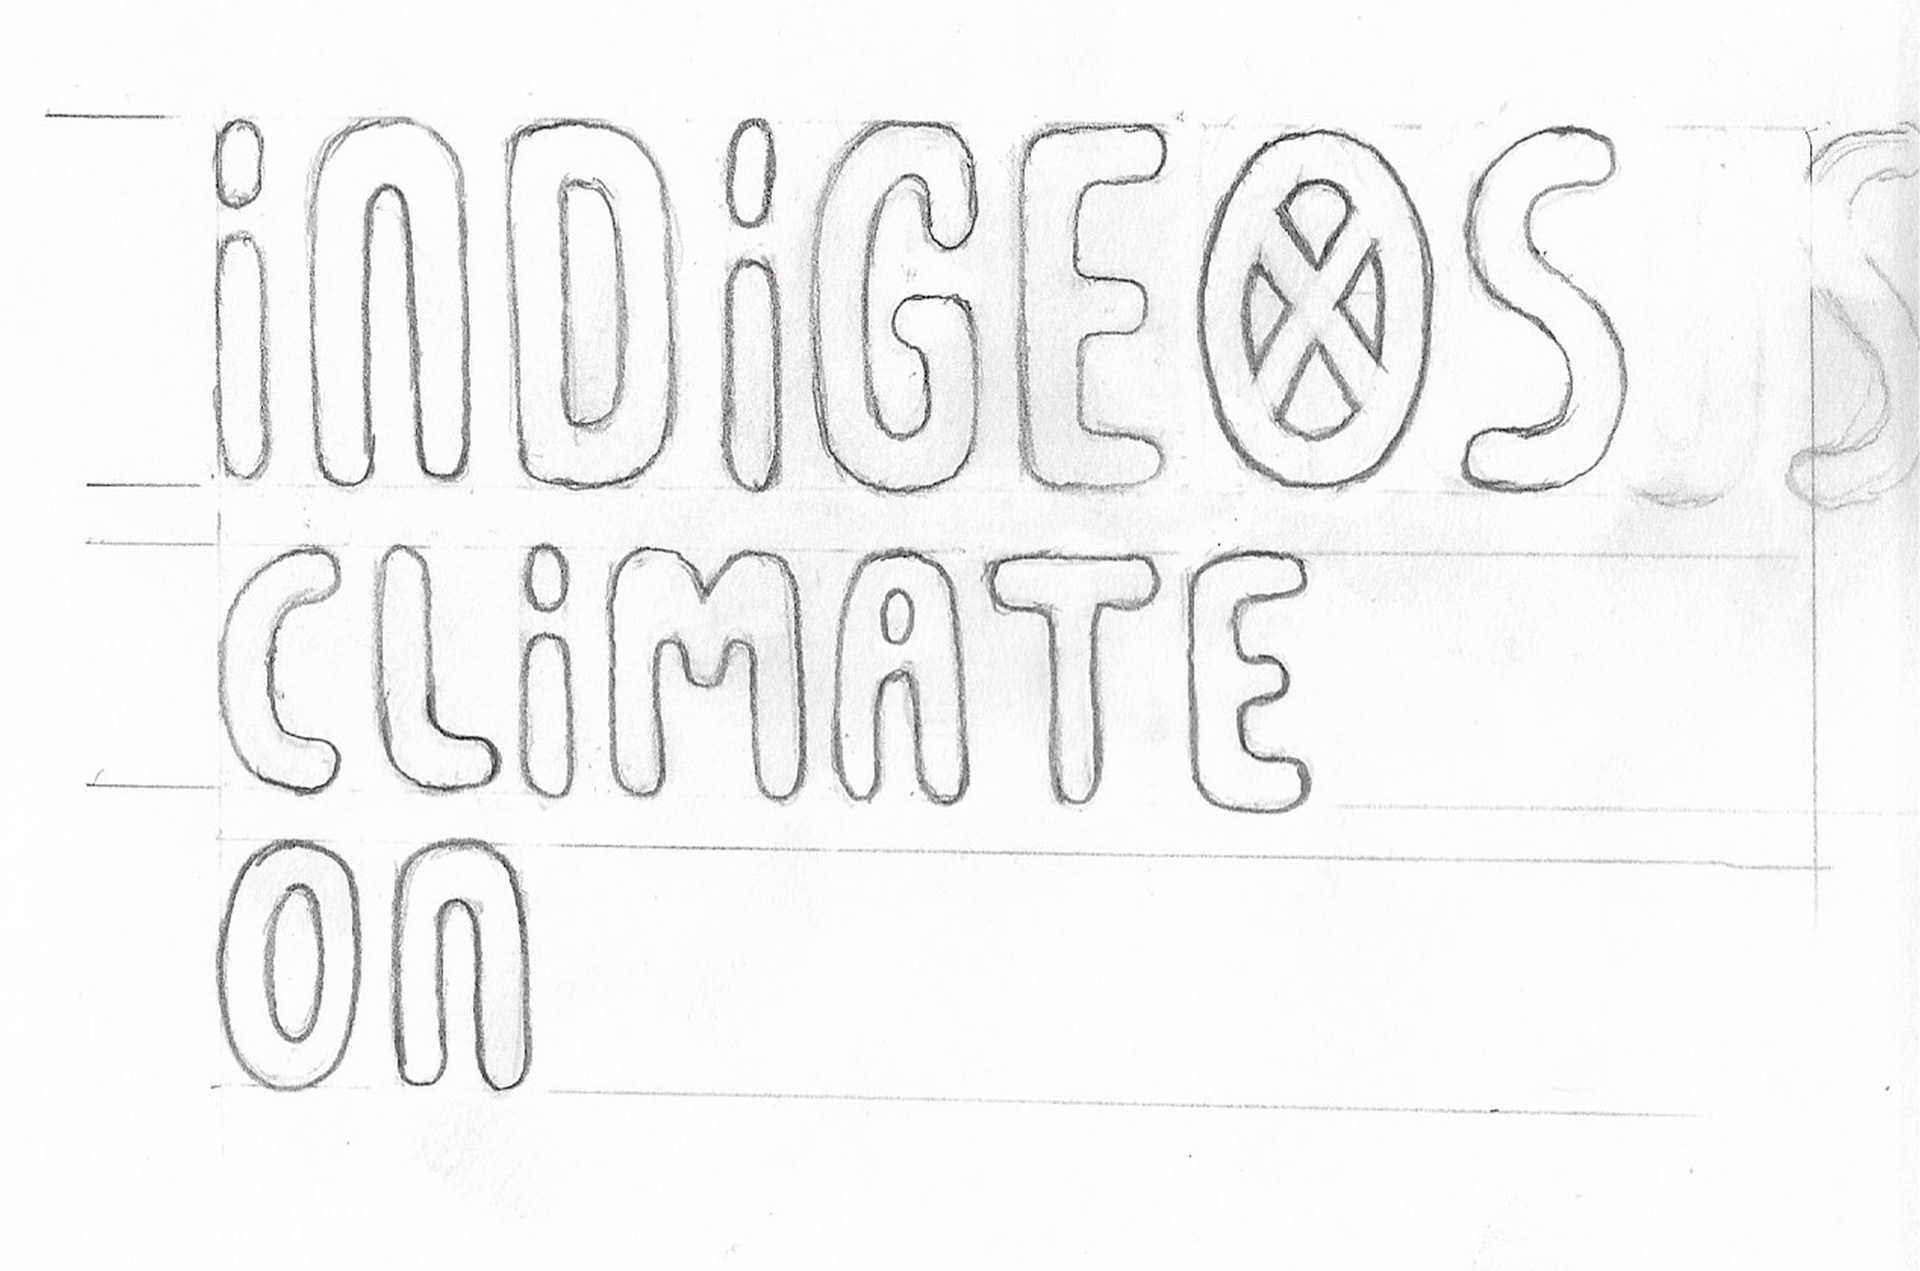 iNDiGEOS
CLiMATE
ON